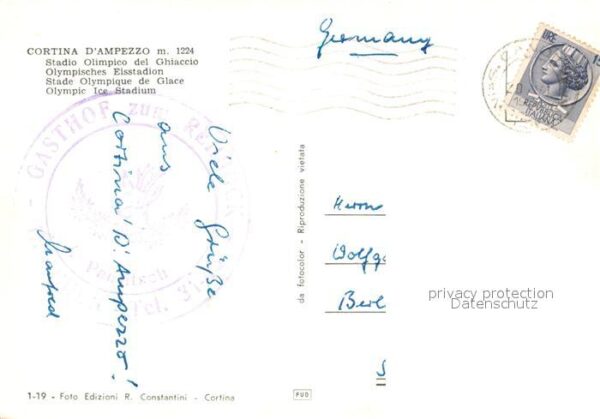 CORTINA D'AMPEZZO m. 1224
Stadio Olimpico del Ghiaccio
Olympisches Eisstadion
Stade Olympique de Glace
Olympic Ice Stadium
Germany
LIRE 15
REPUBBLICA
ITALIANA
GASTHOF ZUR
Tel. 3
Viele Grüße
aus
Cortina D'Ampezzo!
Manfred
da fotocolor - Riproduzione vietata
Herrn
Wolfg
Berl
S
privacy protection
Datenschutz
1-19 - Foto Edizioni R. Constantini - Cortina